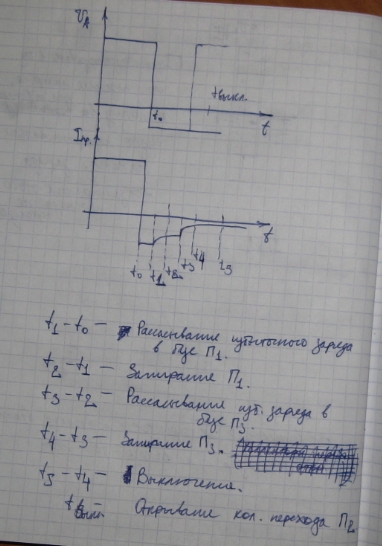 U_A
t выкл.
t₀
t
I пр.
t
t₀ t₁ t₂ t₃ t₄ t₅
t₁ - t₀ — Рассасывание избыточного заряда
в базе П₁.
t₂ - t₁ — Запирание П₁.
t₃ - t₂ — Рассасывание изб. заряда в
базе П₃.
t₄ - t₃ — Запирание П₃.
t₅ - t₄ — Выключение.
t выкл — Открывание кол. перехода П₂